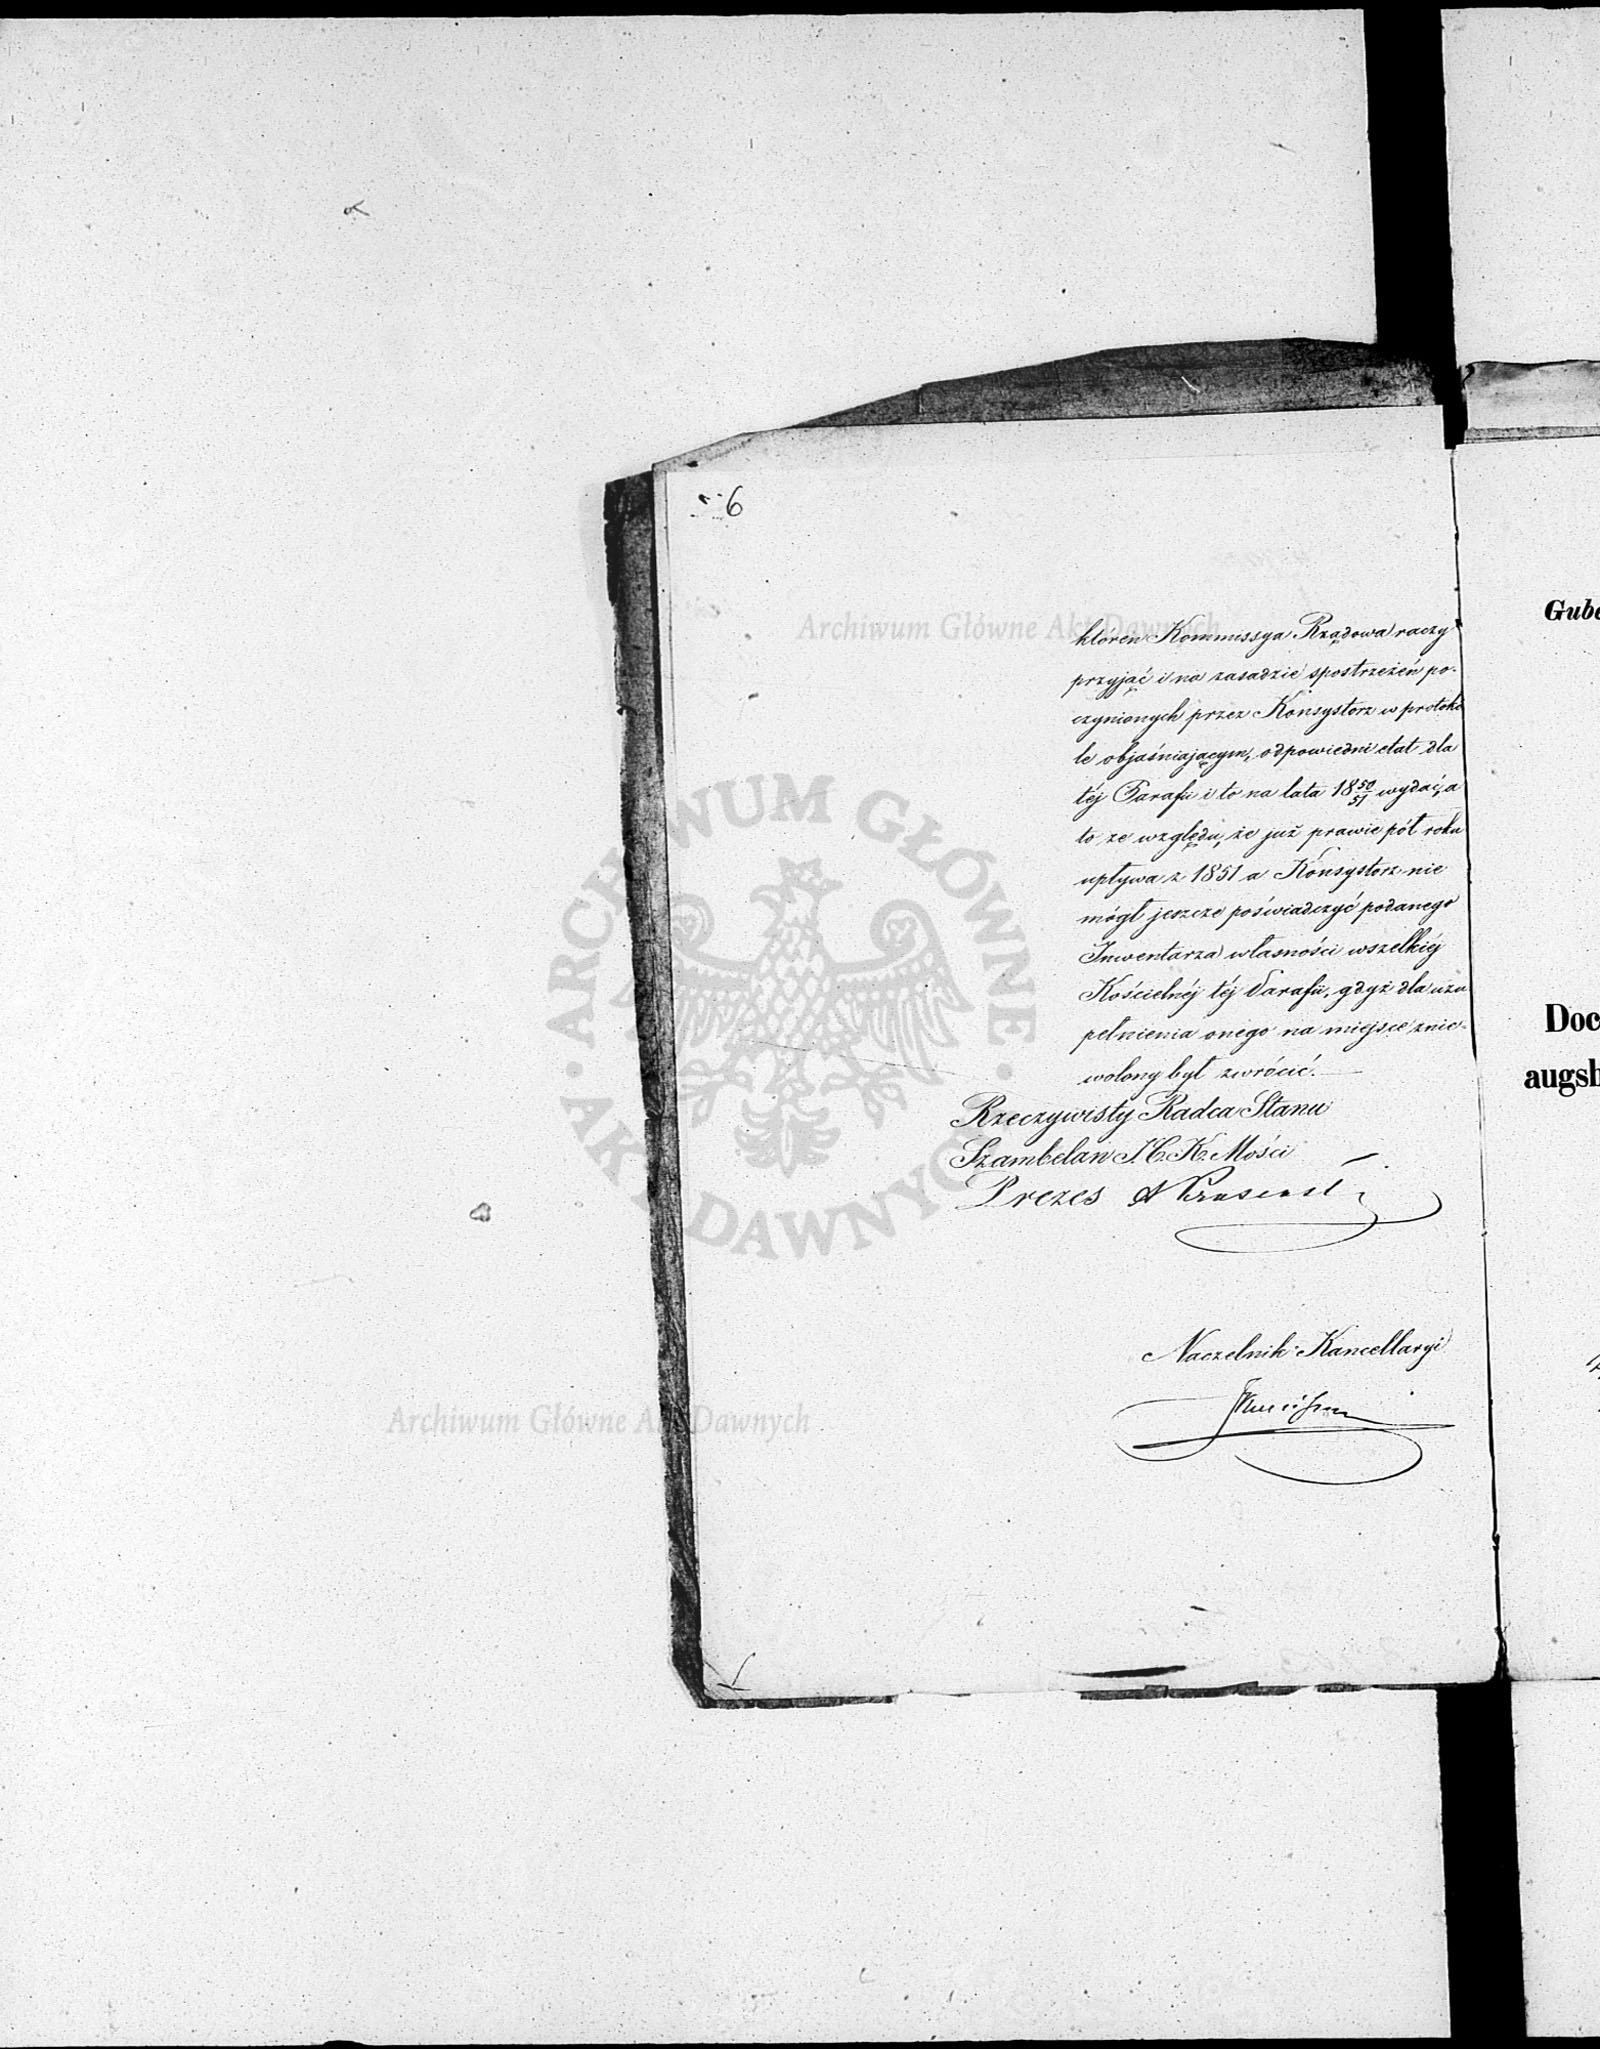 6
któren Kommissya Rządowa raczy
przyjąć i na zasadzie spostrzeżeń po-
czynionych przez Konsystorz w protokó
le objaśniającym, odpowiedni etat dla
téj Parafii i to na lata 18 50/51 wydać, a
to ze względu, że już prawie pół roku
upływa z 1851 a Konsystorz nie
mógł jeszcze poświadczyć podanego
Inwentarza własności wszelkiéj
Kościelnéj téj Parafii, gdyż dla uzu
pełnienia onego na miejsce znie-
wolony był zwrócić.
Rzeczywisty Radca Stanu
Szambelan J. C. K. Mości
Prezes
Naczelnik Kancellaryi
Gube
Doc
augsb
Archiwum Główne Akt Dawnych
ARCHIWUM GŁÓWNE
AKT DAWNYCH
Archiwum Główne Akt Dawnych